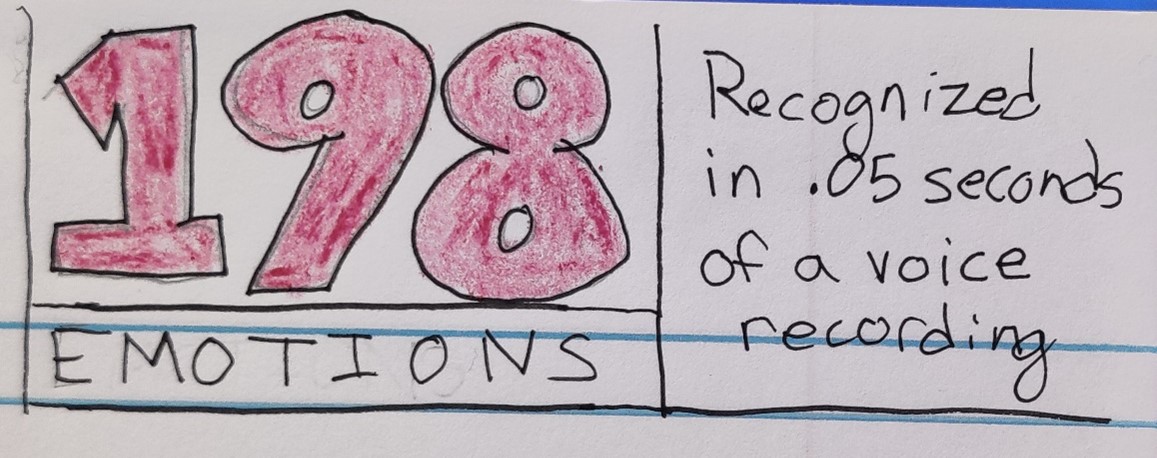 198
EMOTIONS
Recognized
in .05 seconds
of a voice
recording